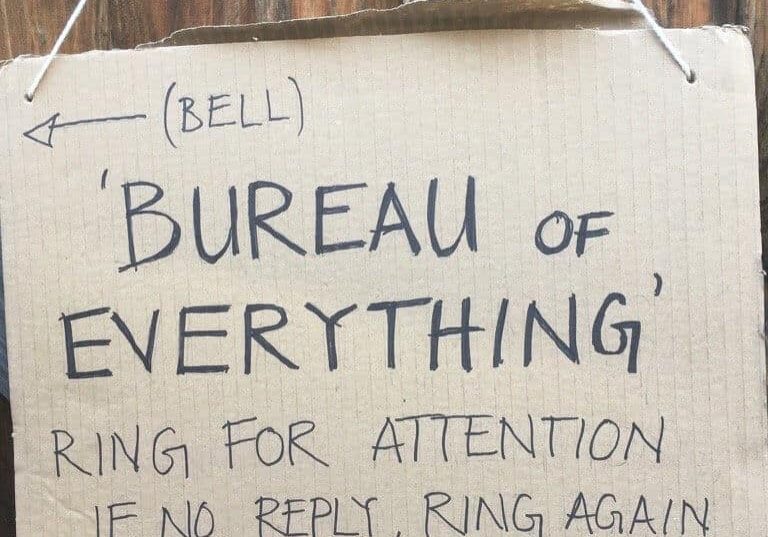 (BELL)
'BUREAU OF
EVERYTHING'
RING FOR ATTENTION
IF NO REPLY, RING AGAIN